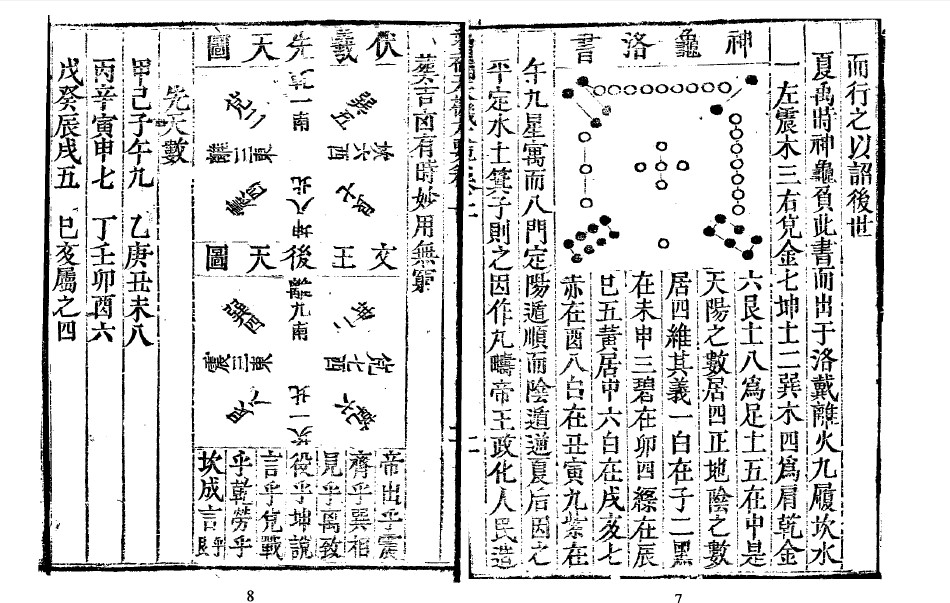 而行之以詔後世
夏禹時神龜負此書而出于洛戴離火九履坎水
一左震木三右兌金七坤土二巽木四為肩乾金
神龜洛書
六艮土八為足土五在中是
天陽之數居四正地陰之數
居四維其義一白在子二黑
在未申三碧在卯四綠在辰
巳五黃居中六白在戌亥七
赤在酉八白在丑寅九紫在
午九星寓而八門定陽遁順而陰遁逆夏后因之
平定水土箕子則之因作九疇帝王政化人民造
7
葬吉凶有時妙用無窮
伏羲先天圖
巽五
坎六西
艮七
乾一南
坤八北
兌二
離三東
震四
文王後天圖
坤二
兌七西
乾六
離九南
坎一北
巽四
震三東
艮八
帝出乎震
齊乎巽相
見乎離致
役乎坤說
言乎兌戰
乎乾勞乎
坎成言乎艮
先天數
甲己子午九 乙庚丑未八
丙辛寅申七 丁壬卯酉六
戊癸辰戌五 巳亥屬之四
8